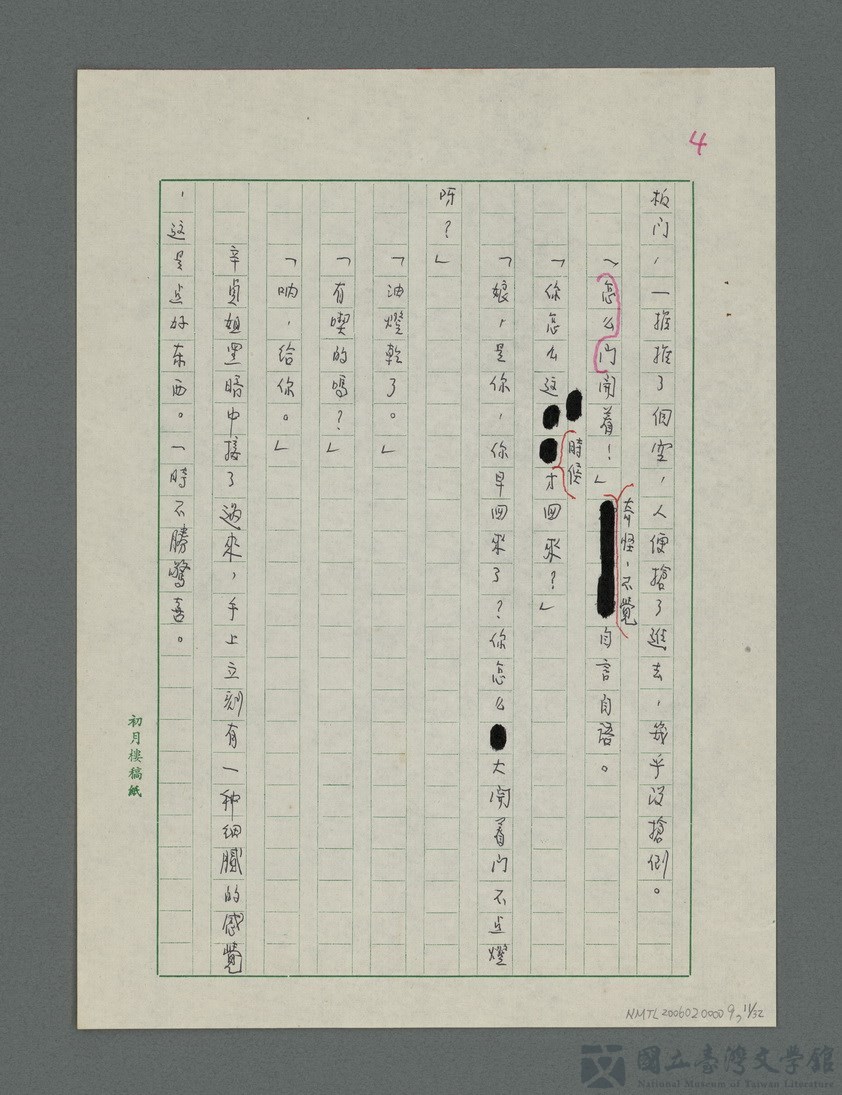 4
板门，一推推了個空，人便搶了進去，幾乎没搶倒。
「怎么门開着！」奇怪，不覺自言自语。
「你怎么这時候才回來？」
「娘，是你，你早回來了？你怎么大開着门不点燈
呀？」
「油燈乾了。」
「有喫的嗎？」
「呐，给你。」
辛貞姐黑暗中接了過來，手上立刻有一种细膩的感覺
，这是点好东西。一時不勝驚喜。
初月樓稿紙
NMTL20060200009, 11/32
國立臺灣文學館
National Museum of Taiwan Literature